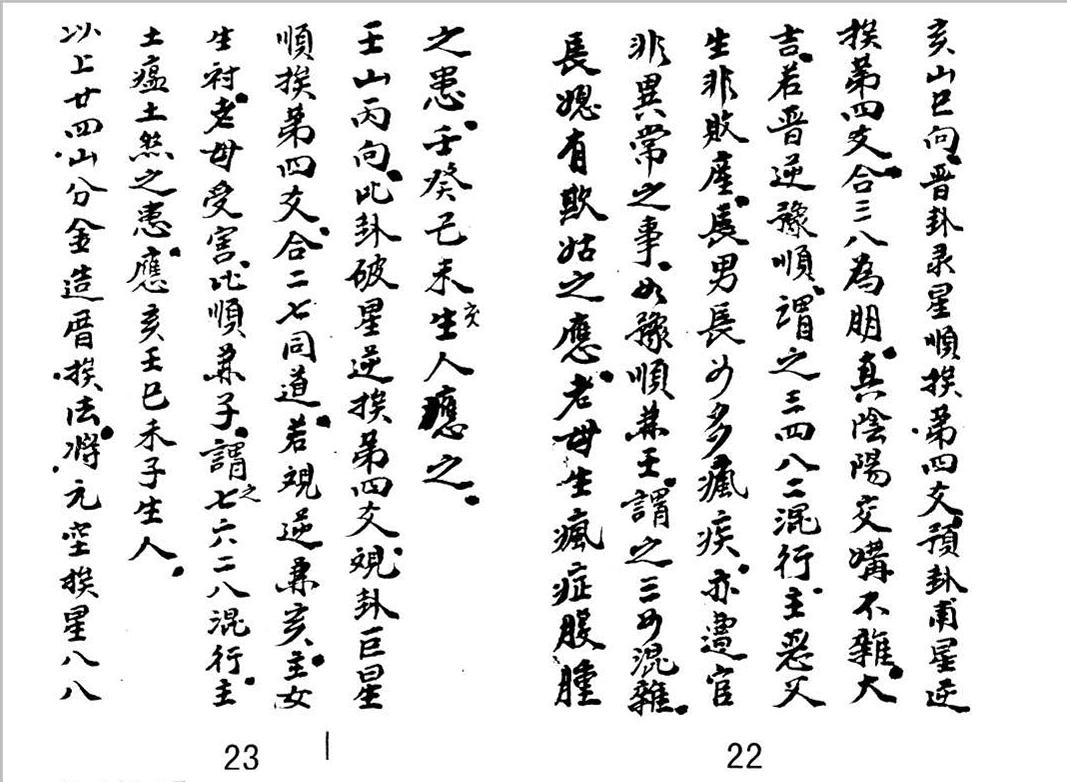 亥山巳向。晋卦录星順挨第四爻。預卦甫星逆
挨第四爻。合三八為朋。真陰陽交媾不雜。大
吉。若晋逆豫順。謂之三四八二混行。主惡乂
生非敗產。長男長女多瘋疾。亦遭官
非異常之事。如豫順兼壬。謂之三四混雜。
長媳有欺姑之應。老母生瘋症腹腫
之患。壬癸己未亥生人應之。
壬山丙向。此卦破星逆挨第四爻。覌卦巨星
順挨第四爻。合二七同道。若覌逆兼亥。主女
生衬。老母受害。比順兼子。謂之七六二八混行。主
土瘟土煞之患。應亥壬巳未子生人。
以上廿四山分金造厝挨法。將元空挨星八八
23
22